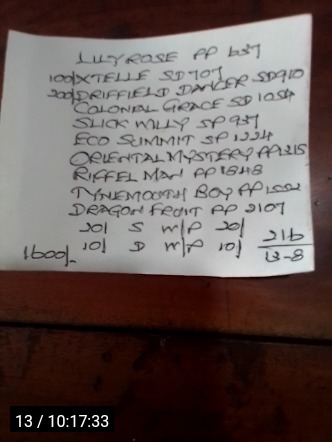 LILY ROSE PP 637
100/ XTELLE SD 707
200/ DRIFFIELD DANCER SD 910
COLONIAL GRACE SD 1054
SLICK WILLY SP 937
ECO SUMMIT SP 1224
ORIENTAL MYSTERY PP 1215
RIFFEL MAN PP 1848
TYNEMOOTH BOY PP
DRAGON FRUIT PP 2107
20/ S W/P 20/ 216
1600/- 10/ D W/P 10/ 13-8
13 / 10:17:33